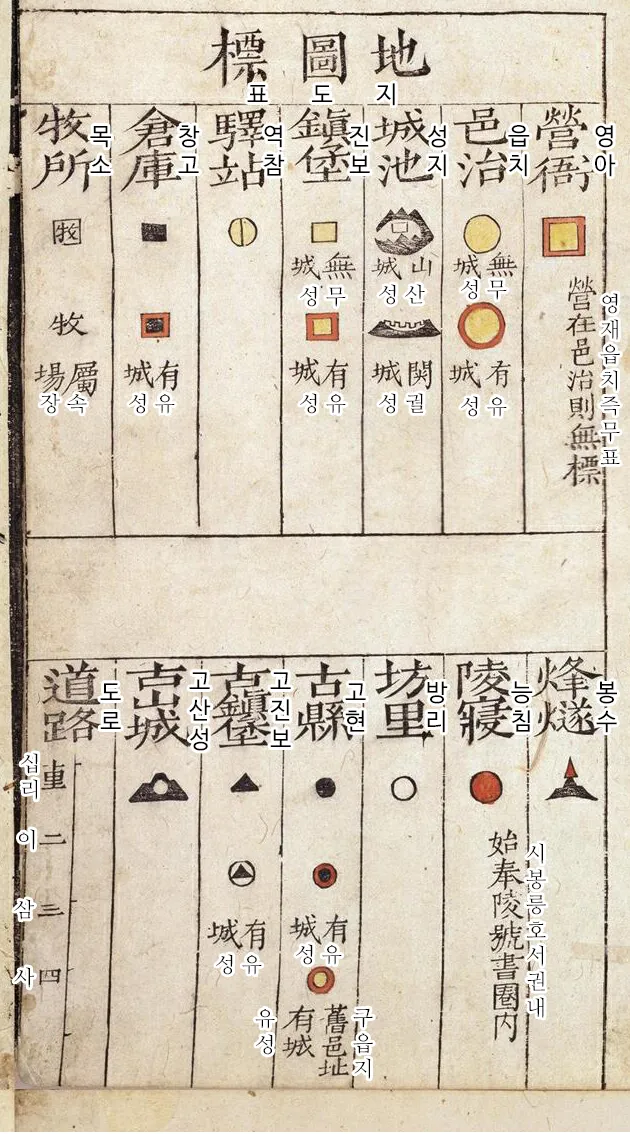 地圖標
지도표
營衙
영아
營在邑治則無標
영재읍치즉무표
邑治
읍치
無城
무성
有城
유성
城池
성지
山城
산성
関城
궐성
鎭堡
진보
無城
무성
有城
유성
驛站
역참
倉庫
창고
有城
유성
牧所
목소
牧
牧
屬場
속장
烽燧
봉수
陵寢
능침
始奉陵號書圈内
시봉릉호서권내
坊里
방리
古縣
고현
有城
유성
舊邑址
구읍지
有城
유성
古鎭堡
고진보
有城
유성
古山城
고산성
道路
도로
십리
二
이
三
삼
四
사